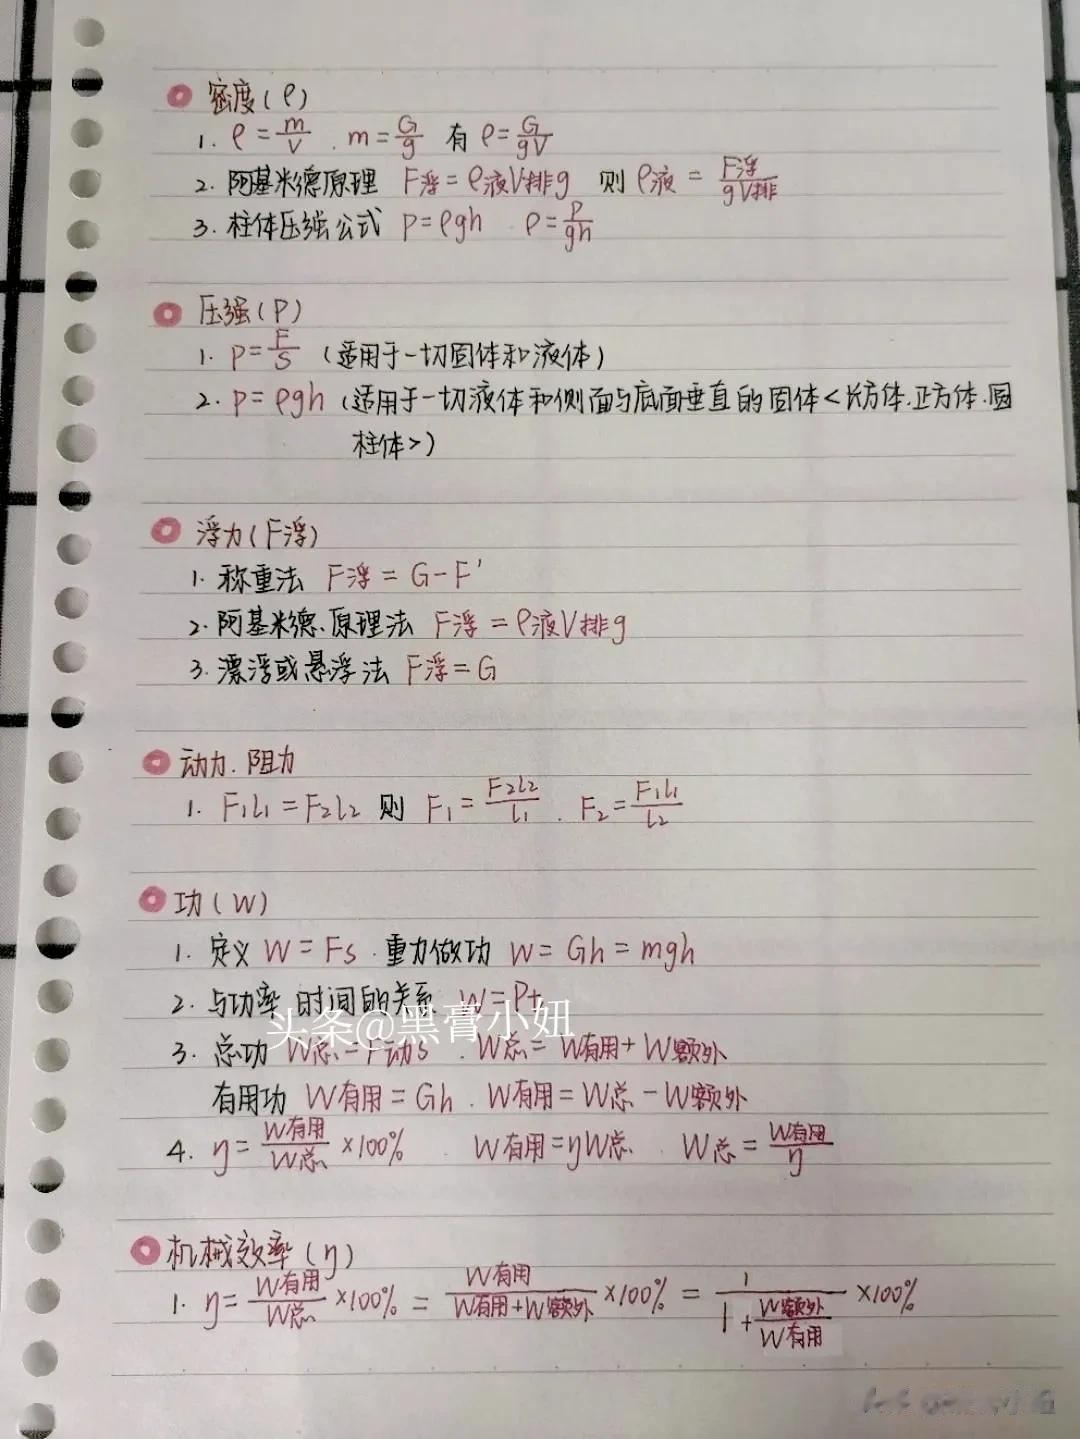 密度(ρ)
1. ρ=m/V . m=G/g 有 ρ=G/gV
2. 阿基米德原理 F浮=ρ液V排g 则ρ液=F浮/gV排
3. 柱体压强公式 p=ρgh . ρ=P/gh
压强(P)
1. p=F/S (适用于一切固体和液体)
2. p=ρgh (适用于一切液体和侧面与底面垂直的固体<长方体.正方体.圆
柱体>)
浮力(F浮)
1. 称重法 F浮=G-F'
2. 阿基米德原理法 F浮=ρ液V排g
3. 漂浮或悬浮法 F浮=G
动力.阻力
1. F1l1=F2l2 则 F1=F2l2/l1 . F2=F1l1/l2
功(W)
1. 定义 W=Fs .重力做功 W=Gh=mgh
2. 与功率 时间的关系 W=Pt
头条@黑膏小妞
3. 总功 W总=F动s . W总=W有用+W额外
有用功 W有用=Gh . W有用=W总-W额外
4. η=W有用/W总×100% . W有用=ηW总 . W总=W有用/η
机械效率(η)
1. η=W有用/W总×100%=W有用/W有用+W额外×100%=1/1+W额外/W有用×100%